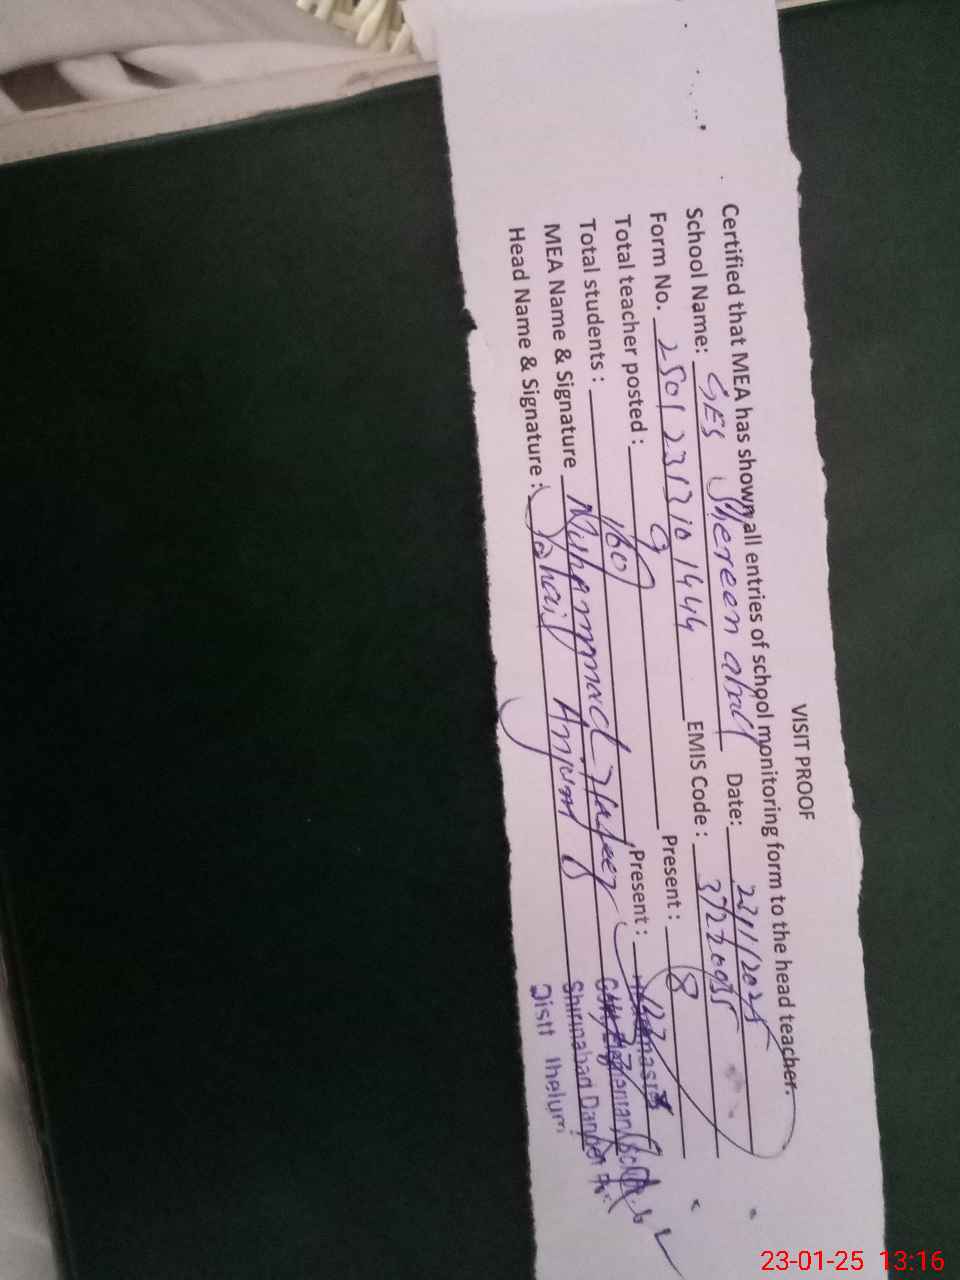 VISIT PROOF
Certified that MEA has shown all entries of school monitoring form to the head teacher.
School Name: GES Shereen abad Date: 23/1/2025
Form No. 25012313101444 EMIS Code : 37220055
Total teacher posted : 9 Present : 8
Total students : 160 Present : 127
MEA Name & Signature Muhammad Zafeer
Head Name & Signature : Anjum
Shirinabad
Distt Jhelum
23-01-25 13:16